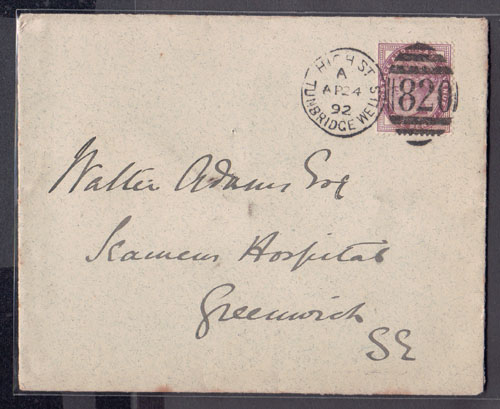 HIGH ST.
A
AP 24
92
TUNBRIDGE WELLS
820
Walter Adams Esq
Seamens Hospital
Greenwich
SE